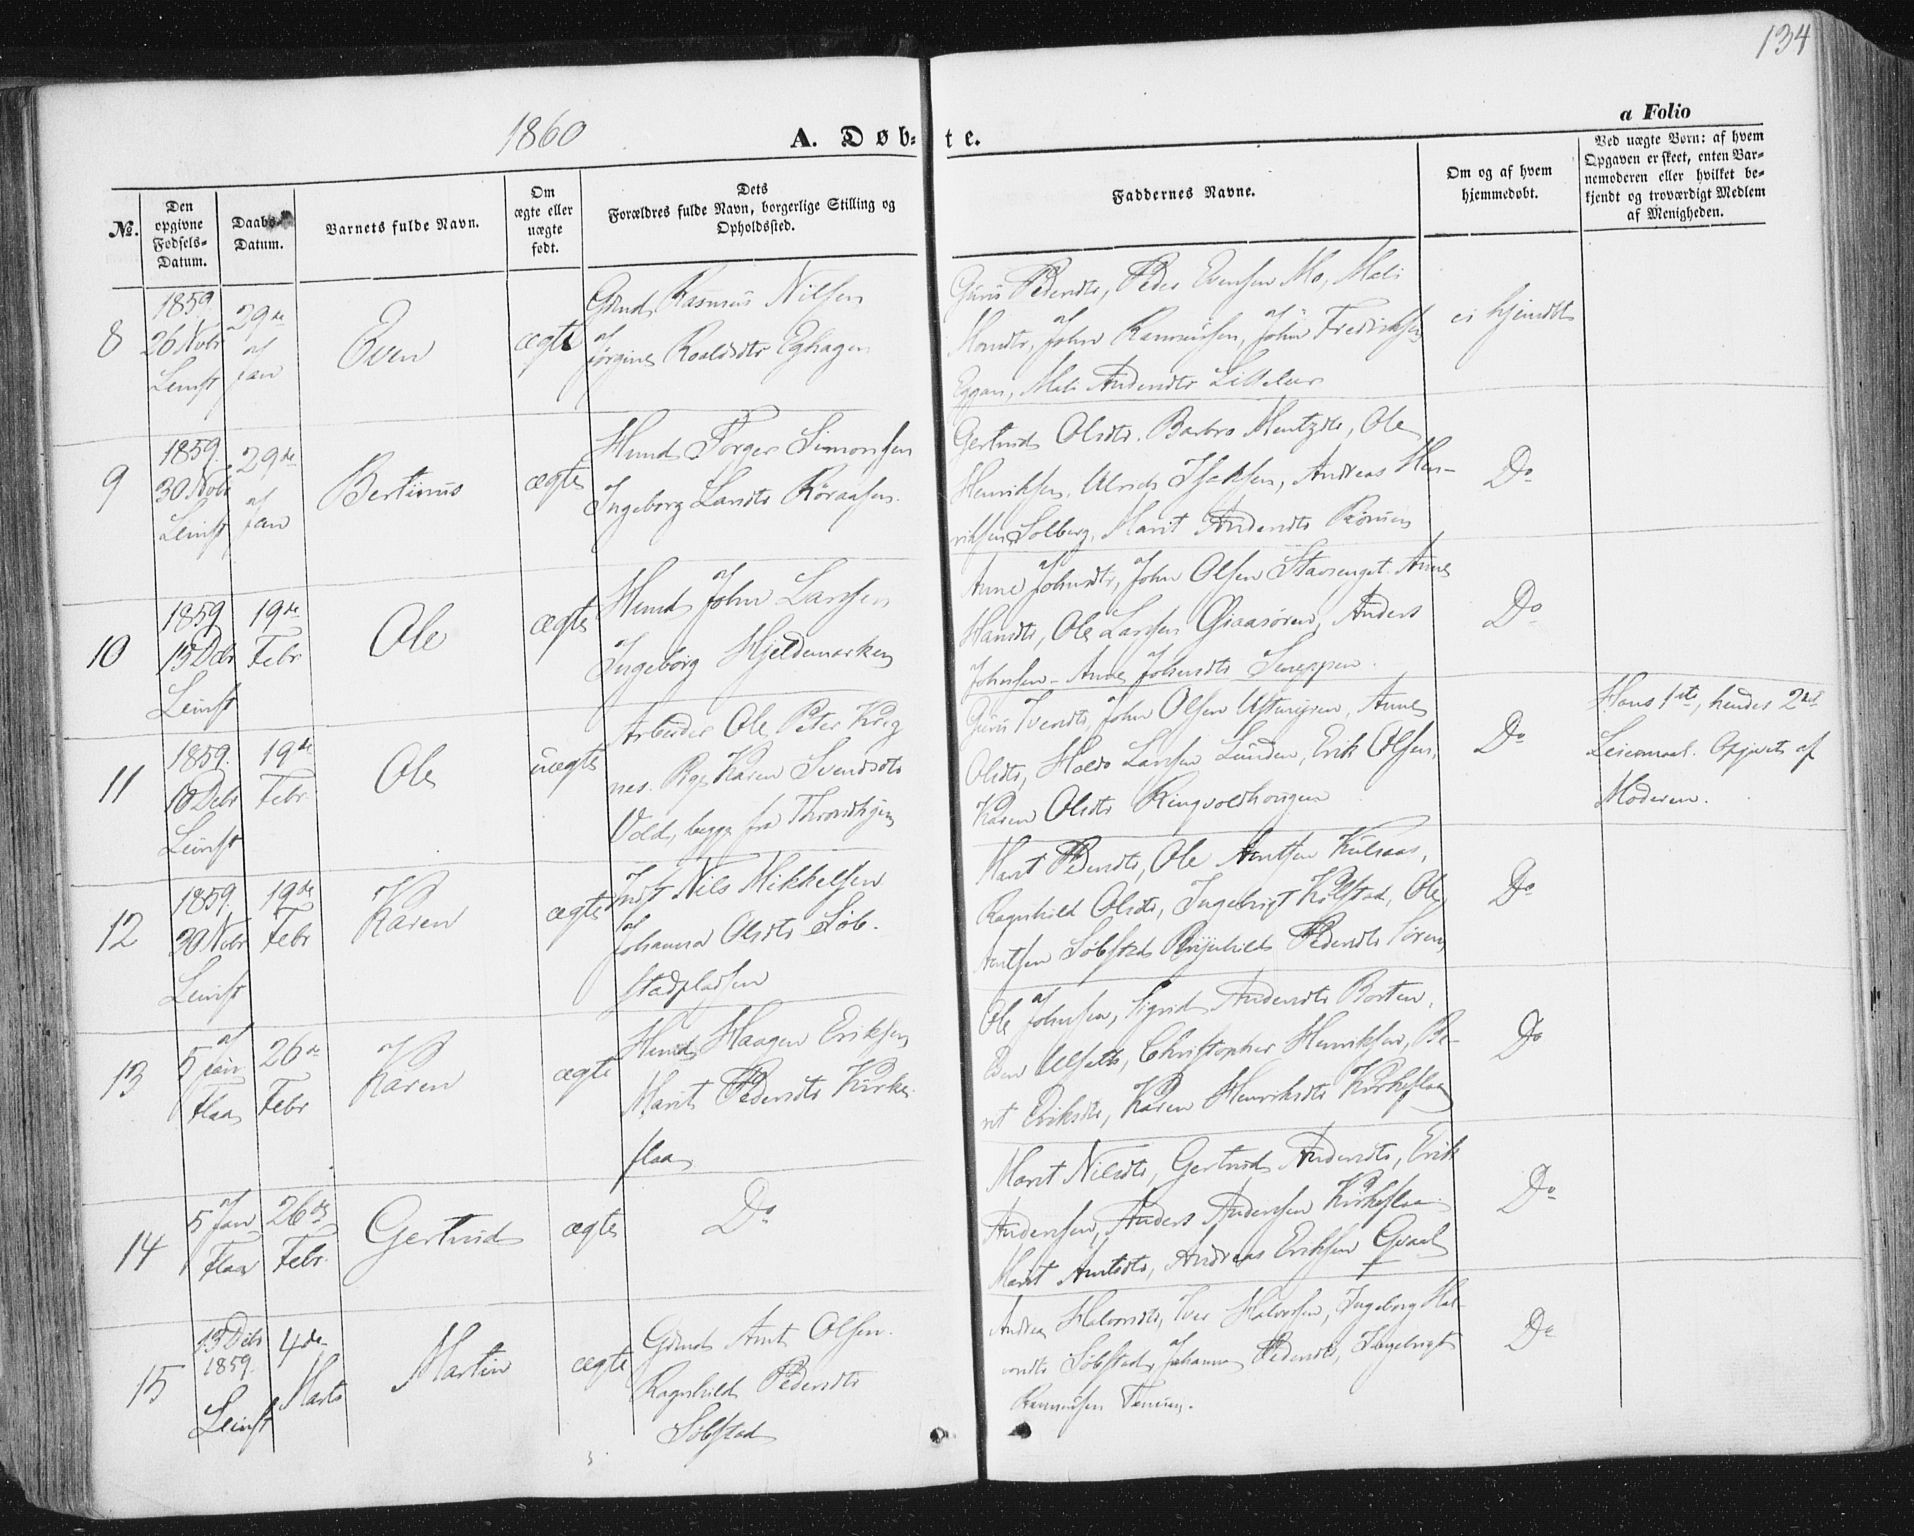 134
1860
A. Døb-te.
a Folio
No.
Den opgivne Fødsels-Datum.
Daabs-Datum.
Barnets fulde Navn.
Om ægte eller uægte født.
Dets Forældres fulde Navn, borgerlige Stilling og Opholdssted.
Faddernes Navne.
Om og af hvem hjemmedøbt.
Ved uægte Børn: af hvem Opgaven er skeet, enten Barnemoderen eller hvilket bekjendt og troværdigt Medlem af Menigheden.
8
1859
26 Novbr
Leinst
29de
Jan
Even
ægte
Gmd Rasmus Nilsen
Jørgine Roaldsdtr Eghagen
Guru Pedersdtr, Peder Evensen Mo, Mali
John Rasmussen, John Fredriksen
Eggan, Mali Andersdtr
ei hjemdbt
9
1859.
30 Novbr
Leinst
29de
Jan
Bertinus
ægte
Hmd Torger Simonsen
Ingeborg Larsdtr Røraasen.
Gertrud Olsdtr. Barbro Mentzdtr, Ole
Henriksen, Ulrich Isaksen, Andreas Hen-
riksen Solberg, Marit Andersdtr
Do
10
1859
13 Debr
Leinst
19de
Febr
Ole
ægte
Hmd John Larsen
Ingeborg Hjeldemarken
Anne Johnsdtr, John Olsen Stavsenget. Anne
Hansdtr, Ole Larsen Graasøren, Anders
Johnsen - Anne Johnsdtr
Do
11
1859.
18 Debr
Leinst
19de
Febr.
Ole
uægte
Arbeider Ole Peter
nes. Pge Karen Svendsdtr
Vold, begge fra Throndhjem
Guru John Olsen Anne
Olsdtr, Haldo Larsen Lunden, Erik Olsen,
Karen Olsdtr Ringvoldhougen
Do
Hans 1ste, hendes 2det
Leiermaal. Opgivet af
Moderen.
12
1859.
30 Novbr
Leinst
19de
Febr
Karen
ægte
Indst Nils Mikkelsen
Johanna Olsdtr Søb-
stadpladsen
Marit Pedersdtr, Ole Arntsen
Ragnhild Olsdtr, Ingebrigt Kolstad, Ole
Arntsen Søbstad Pedersdtr
Do
13
5 Jan
Flaa
26de
Febr
Karen
ægte
Hmd Haagen Eriksen
Marit Pedersdtr Kirke-
flaa
Ole Johnsen, Sigrid Andersdtr Borten,
Christopher Henriksen, Be-
rit Eriksdtr, Karen Henriksdtr Kirkeflaa
Do
14
5 Jan
Flaa
26de
Febr.
Gertrud
ægte
Do
Marit Nilsdtr, Gertrud Andersdtr, Erik
Andersen, Anders Andersen Kirkeflaa
Marit Arntsdtr, Andreas Eriksen Gvaal
Do
15
13 Debr
1859.
Leinst
4de
Marts
Martin
ægte
Gdmd Arnt Olsen.
Ragnhild Pedersdtr
Søbstad
Andrea Halvorsdtr, Iver Halvorsen, Ingeborg Hal-
vorsdtr Søbstad, Johanna Pedersdtr, Ingebrigt
Rasmussen
Do